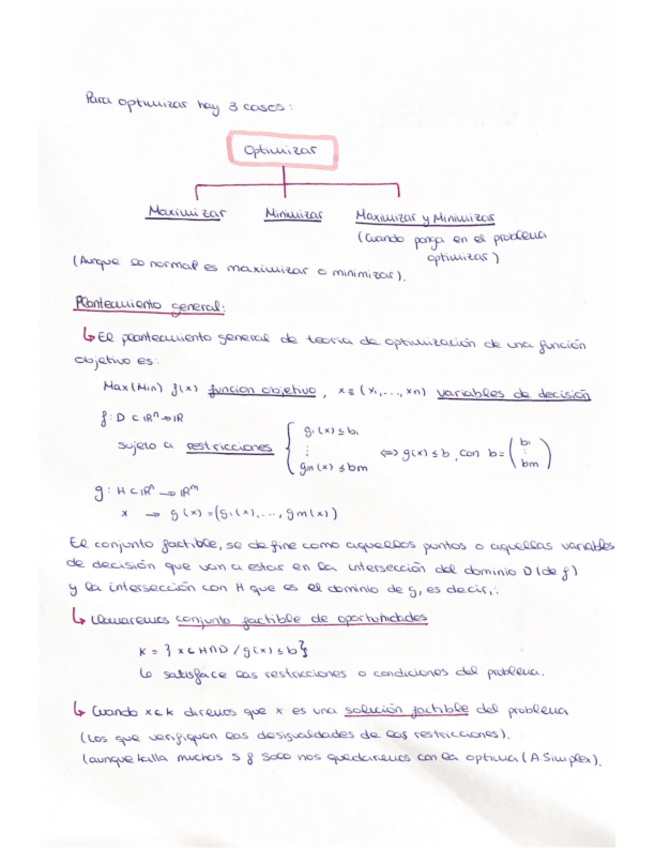 Para optimizar hay 3 casos:
Optimizar
Maximizar Minimizar Maximizar y Minimizar
(Cuando ponga en el problema
optimizar)
(Aunque lo normal es maximizar o minimizar).
Planteamiento general:
↳ El planteamiento general de teoria de optimización de una función
objetivo es:
Max(Min) f(x) funcion objetivo, x≡(x₁,...,xn) variables de decisión
f: D⊂ℝⁿ→ℝ
sujeto a restricciones { g₁(x)≤b₁ ⋮ gm(x)≤bm ⟺ g(x)≤b, con b=(b₁ ⋮ bm)
g: H⊂ℝⁿ→ℝᵐ
x → g(x)=(g₁(x),...,gm(x))
El conjunto factible, se define como aquellos puntos o aquellas variables
de decisión que van a estar en la intersección del dominio D(de f)
y la intersección con H que es el dominio de g, es decir,:
↳ Llamaremos conjunto factible de oportunidades
K = { x∈H∩D / g(x)≤b}
↳ satisface las restricciones o condiciones del problema.
↳ Cuando x∈K diremos que x es una solución factible del problema
(Los que verifiquen las desigualdades de las restricciones).
(aunque halla muchas S f solo nos quedaremos con la optima (A.Simplex).